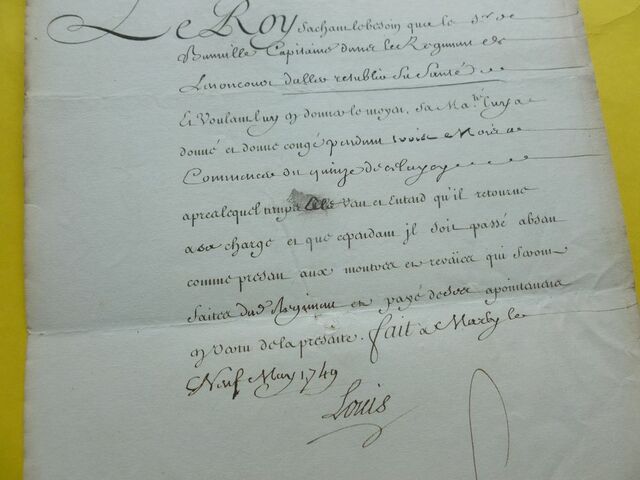 Le Roy Sachant le besoin que le Sr. de
Capitaine dans le Regiment de
d'aller retablir Sa Santé
Et Voulant luy en donner le moyen, Sa Maté. luy a
donné et donne congé pendant trois Mois a
Commencer du quinze de ce mois
apres lequel temps Elle Veut et Entend qu'il retourne
a sa charge et que cependant jl soit passé absent
comme present aux montres et reveües qui Seront
faites dud. Regiment et payé de ses apointemens
en Vertu de la presente. fait a Marly le
Neuf May 1749
Louis